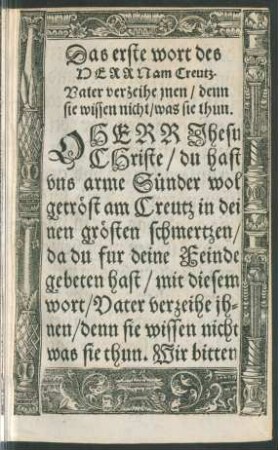 Das erste wort des
HERRN am Creutz.
Vater verzeihe jnen / denn
sie wissen nicht / was sie thun.
O HERR Jhesu
CHriste / du hast
vns arme Sünder wol
getröst am Creutz in dei
nen grösten schmertzen /
da du fur deine Feinde
gebeten hast / mit diesem
wort / Vater verzeihe jh-
nen / denn sie wissen nicht
was sie thun. Wir bitten